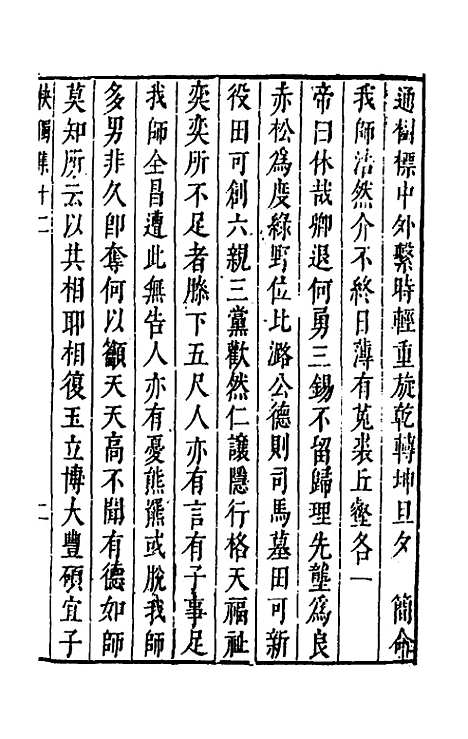 通樹標中外繫時輕重旋乾轉坤旦夕　簡命
我師浩然介不終日薄有菟裘丘壑各一
帝曰休哉卿退何勇三錫不留歸理先壟為良
赤松為度綠野位比潞公德則司馬墓田可新
役田可創六親三黨歡然仁讓隱行格天福祉
奕奕所不足者膝下五尺人亦有言有子事足
我師全昌遭此無告人亦有憂熊羆或脫我師
多男非久卽奪何以籲天天高不聞有德如師
莫知所云以其相耶相復玉立博大豐碩宜子
快獨集十二　二